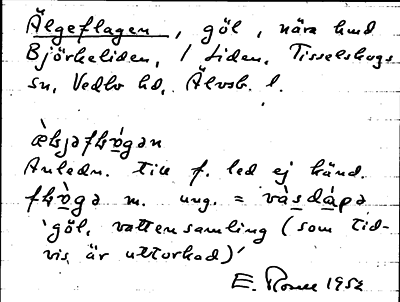 Älgeflagen, göl, nära hmd
Björkeliden, / Liden, Tisselskogs
sn, Vedbo hd, Älvsb. l.
æ̀ljəflɷ̀gən
Anledn. till f. led ej känd.
flɷ̀gə m. ung. = vàsdàpə
'göl, vattensamling (som tid-
vis är uttorkad)'
E. 1952